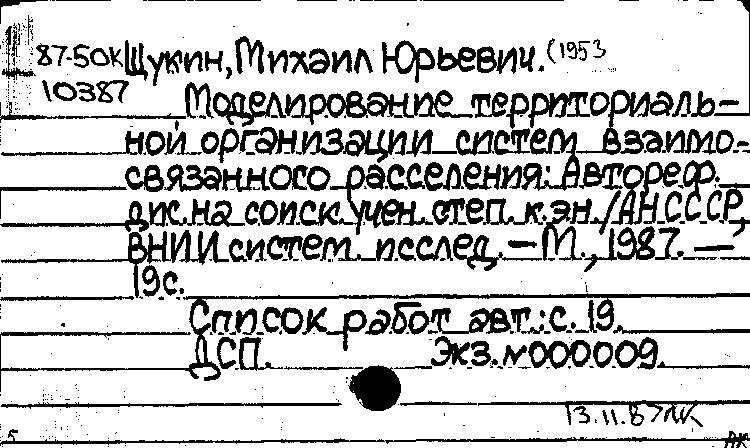 87-50к Щукин, Михаил Юрьевич. (1953
10387 Моделирование территориаль-
ной организации систем взаимо-
связанного расселения: Автореф.
дис. на соиск. учен. степ. к.э.н. / АН СССР,
ВНИИ систем. исслед. — М., 1987. —
19 с.
Список работ авт.: с. 19.
ДСП. Экз. №000009.
13.11.87